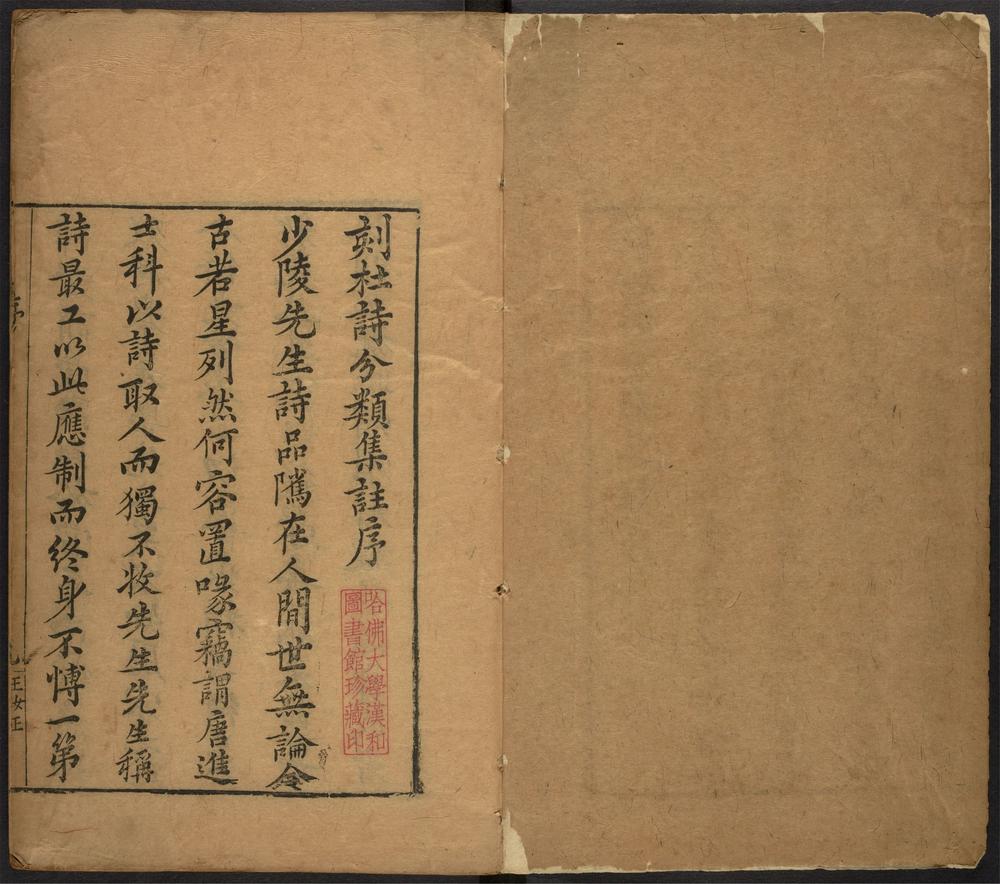 刻杜詩分類集註序
哈佛大學漢和
圖書館珍藏印
少陵先生詩品隲在人間世無論今
古若星列然何容置喙竊謂唐進
士科以詩取人而獨不收先生先生稱
詩最工以此應制而終身不博一第
序